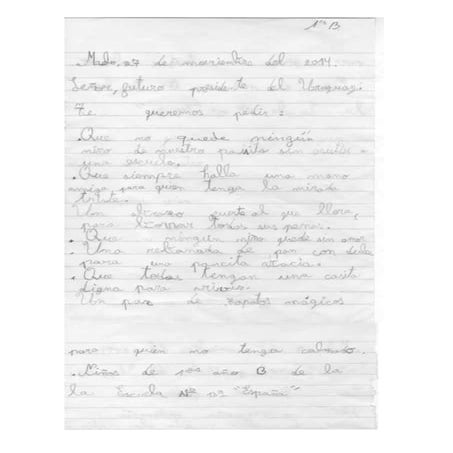 1ro B
Mdo, 27 de noviembre del 2014.
Señor, futuro presidente del Uruguay.
Te queremos pedir:
.Que no quede ningún
niño de nuestro país sin
una escuela.
.Que siempre halla una mano
amiga para quien tenga la mirada
triste.
Un abrazo fuerte al que llora,
para todas sus penas.
.Que ningún niño quede sin amor
.Una rebanada de pan con
para una pancita vacía.
.Que todos tengan una casita
digna para vivir.
Un par de zapatos mágicos
para quién no tenga calzado.
.Niños de 1ro año B de la
la Escuela Nº "España"